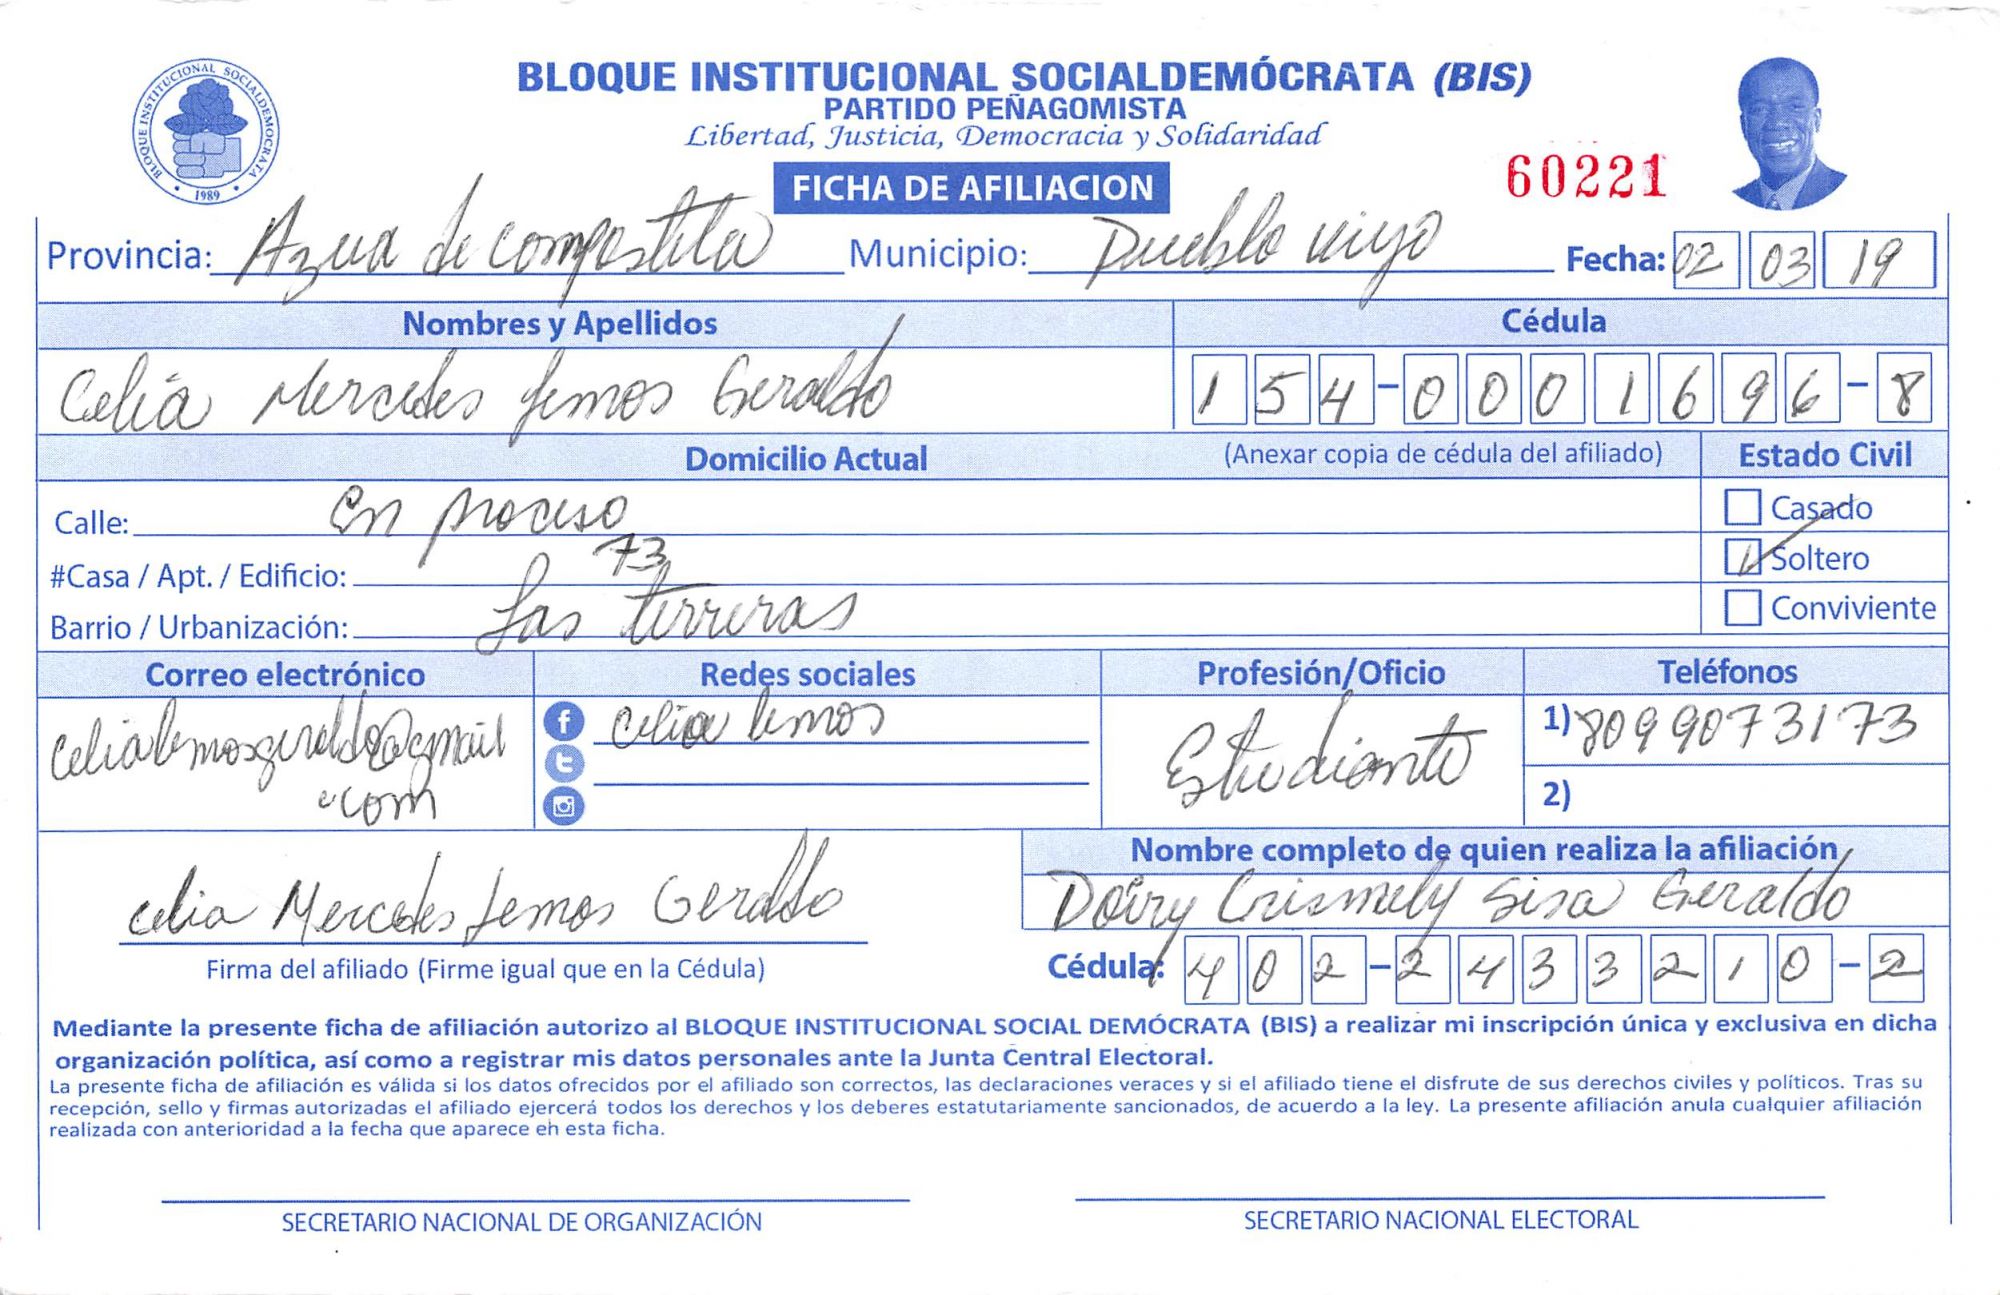 BLOQUE INSTITUCIONAL SOCIALDEMÓCRATA (BIS)
PARTIDO PEÑAGOMISTA
Libertad, Justicia, Democracia y Solidaridad
BLOQUE INSTITUCIONAL SOCIALDEMOCRATA
1989
FICHA DE AFILIACION
60221
Provincia: Azua de compostela Municipio: Pueblo viejo Fecha: 02 03 19
Nombres y Apellidos Cédula
Celia Mercedes Lemos Geraldo 154-0001696-8
Domicilio Actual (Anexar copia de cédula del afiliado) Estado Civil
Calle: En proceso Casado
#Casa / Apt. / Edificio: 73 Soltero
Barrio / Urbanización: Las terreras Conviviente
Correo electrónico Redes sociales Profesión/Oficio Teléfonos
celialemosgeraldo@gmail celia lemos Estudiante 1) 8099073173
.com 2)
Nombre completo de quien realiza la afiliación
celia Mercedes Lemos Geraldo Doiry Crismely Sisa Geraldo
Firma del afiliado (Firme igual que en la Cédula) Cédula: 402-2433210-2
Mediante la presente ficha de afiliación autorizo al BLOQUE INSTITUCIONAL SOCIAL DEMÓCRATA (BIS) a realizar mi inscripción única y exclusiva en dicha
organización política, así como a registrar mis datos personales ante la Junta Central Electoral.
La presente ficha de afiliación es válida si los datos ofrecidos por el afiliado son correctos, las declaraciones veraces y si el afiliado tiene el disfrute de sus derechos civiles y políticos. Tras su
recepción, sello y firmas autorizadas el afiliado ejercerá todos los derechos y los deberes estatutariamente sancionados, de acuerdo a la ley. La presente afiliación anula cualquier afiliación
realizada con anterioridad a la fecha que aparece en esta ficha.
SECRETARIO NACIONAL DE ORGANIZACIÓN SECRETARIO NACIONAL ELECTORAL